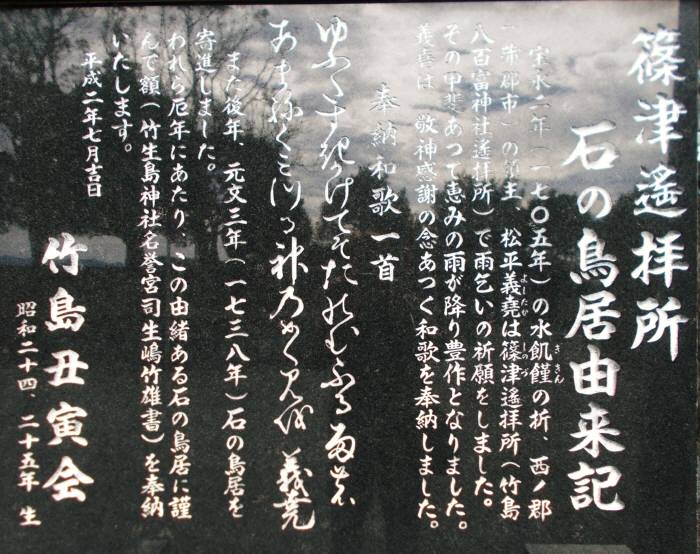 篠津遙拝所
石の鳥居由来記
宝永二年(一七〇五年)の水飢饉の折、西ノ郡
(蒲郡市)の領主 松平義堯は篠津遙拝所(竹島
八百富神社遙拝所)で雨乞いの祈願をしました。
その甲斐あつて恵みの雨が降り豊作となりました。
義堯は 敬神感謝の念あつく和歌を奉納しました。
奉納和歌一首
義堯
また後年、元文三年(一七三八年)石の鳥居を
寄進しました。
われら厄年にあたり、この由緒ある石の鳥居に謹
んで額(竹生島神社名誉宮司生嶋竹雄書)を奉納
いたします。
平成二年七月吉日
竹島丑寅会
昭和二十四、二十五年 生